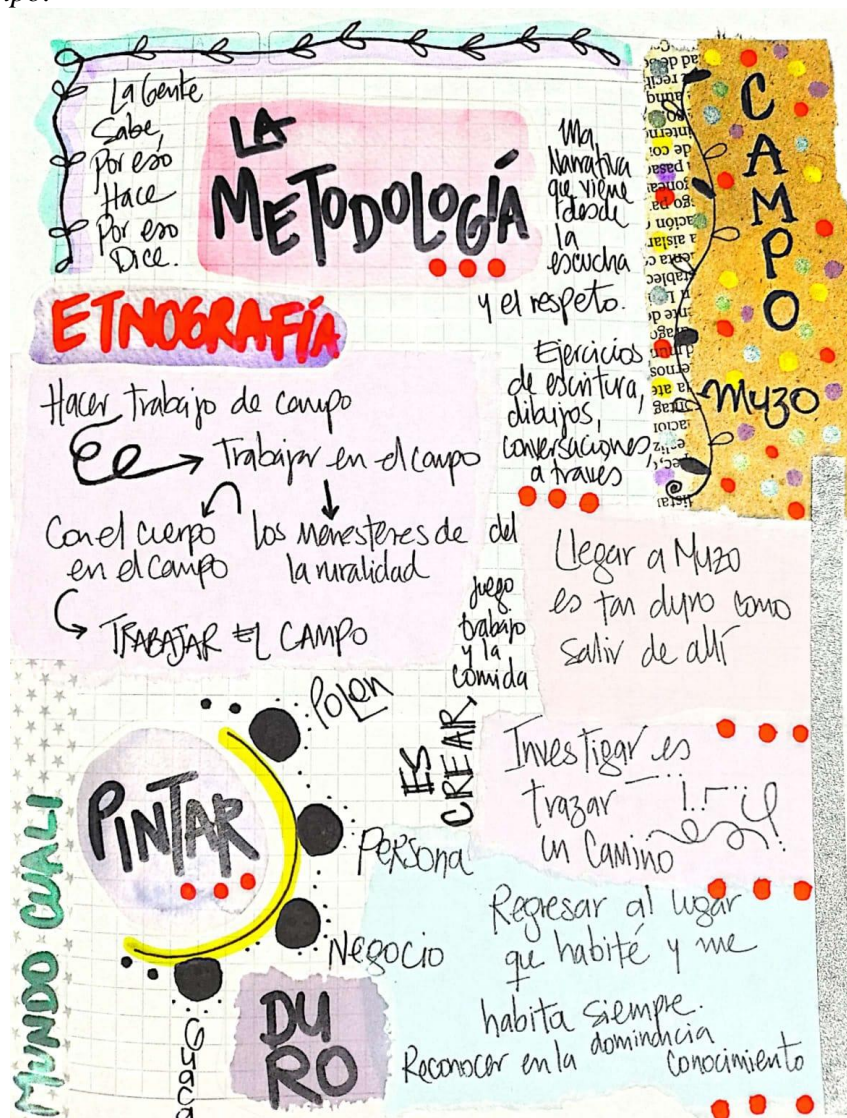 mpo.
La Gente
Sabe,
Por eso
Hace
Por eso
Dice.
LA
METODOLOGÍA
Una
Narrativa
que viene
desde
la
escucha
y el respeto.
CAMPO
Muzo
ETNOGRAFÍA
Hacer trabajo de campo
Trabajar en el campo
Con el cuerpo
en el campo
los menesteres de
la ruralidad
TRABAJAR EL CAMPO
Ejercicios
de escritura,
dibujos,
conversaciones
a traves
del
juego
trabajo
y la
comida
Llegar a Muzo
es tan duro como
salir de allí
ES
CREAR,
Investigar es
trazar
un Camino
MUNDO CUALI
PINTAR
Polen
Persona
Negocio
Guaca
DU
RO
Regresar al lugar
que habité y me
habita siempre.
Reconocer en la
Conocimiento